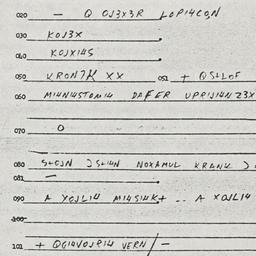 020 — Q OJ3X3R LOPI4CON
030 KOJ3X
040 KOJXI4S
050 KRON7K XX 051 + QS+LOF
060 MI4NI4STOMI4 DAFER UPRIJI4NZ3X
070 O
080 S+CJN JS+I4N NOXAMUL KRANK
081 —
090 A XOJLI4 MI4SI4K+ .. A XOJLI4
100
101 + QGI4VOJRI4 VERN/ —